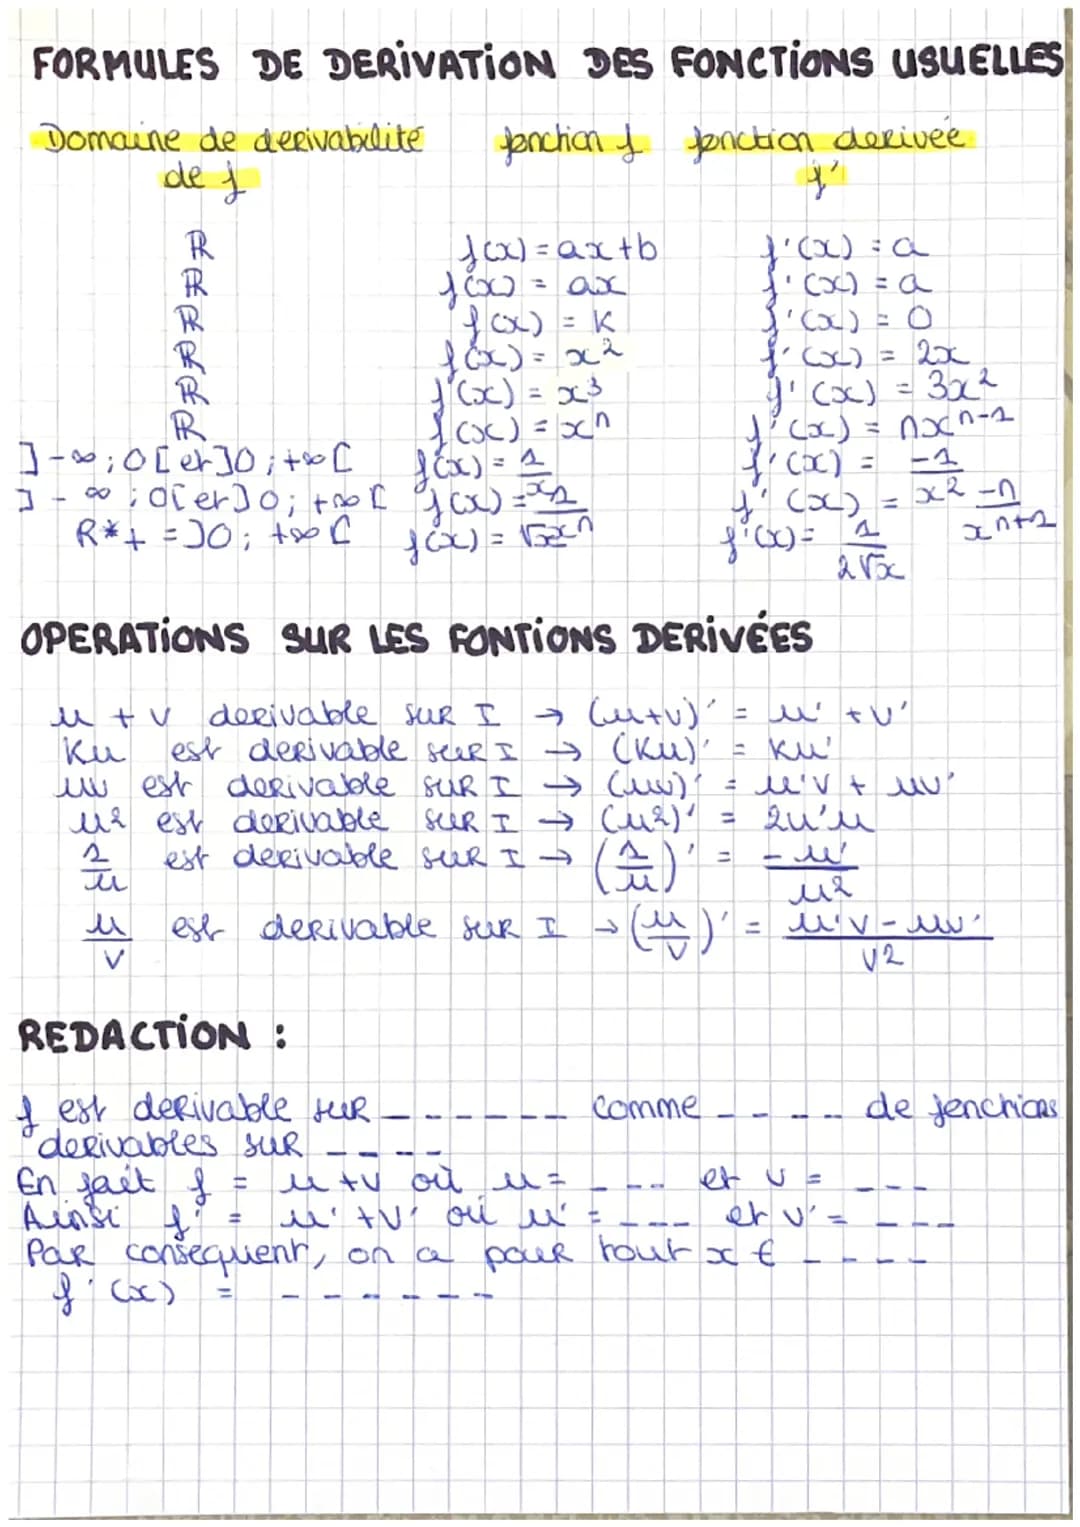 FORMULES DE DERIVATION DES FONCTIONS USUELLES
Domaine de derivabilité fonction f fonction derivée
de f f'
ℝ f(x) = ax+b f'(x) = a
ℝ f(x) = ax f'(x) = a
ℝ f(x) = K f'(x) = 0
ℝ f(x) = x² f'(x) = 2x
ℝ f(x) = x³ f'(x) = 3x²
ℝ f(x) = xⁿ f'(x) = nxⁿ⁻¹
]-∞;0[ et ]0;+∞[ f(x) = 1/x f'(x) = -1/x²
]-∞;0[ et ]0;+∞[ f(x) = 1/xⁿ f'(x) = -n/xⁿ⁺¹
R*+ = ]0;+∞[ f(x) = √x f'(x) = 1/2√x
OPERATIONS SUR LES FONTIONS DERIVÉES
u + v derivable sur I → (u+v)' = u' + v'
Ku est derivable sur I → (Ku)' = Ku'
uv est derivable sur I → (uv)' = u'v + uv'
u² est derivable sur I → (u²)' = 2u'u
1/u est derivable sur I → (1/u)' = -u'/u²
u/v est derivable sur I → (u/v)' = u'v - uv'/v²
REDACTION :
f est derivable sur ------ comme ----- de fonctions
derivables sur ----
En fait f = u+v où u= --- et v = ---
Ainsi f' = u'+v' où u' = --- et v'= ---
Par consequent, on a pour tout x € ----
f'(x) = ------